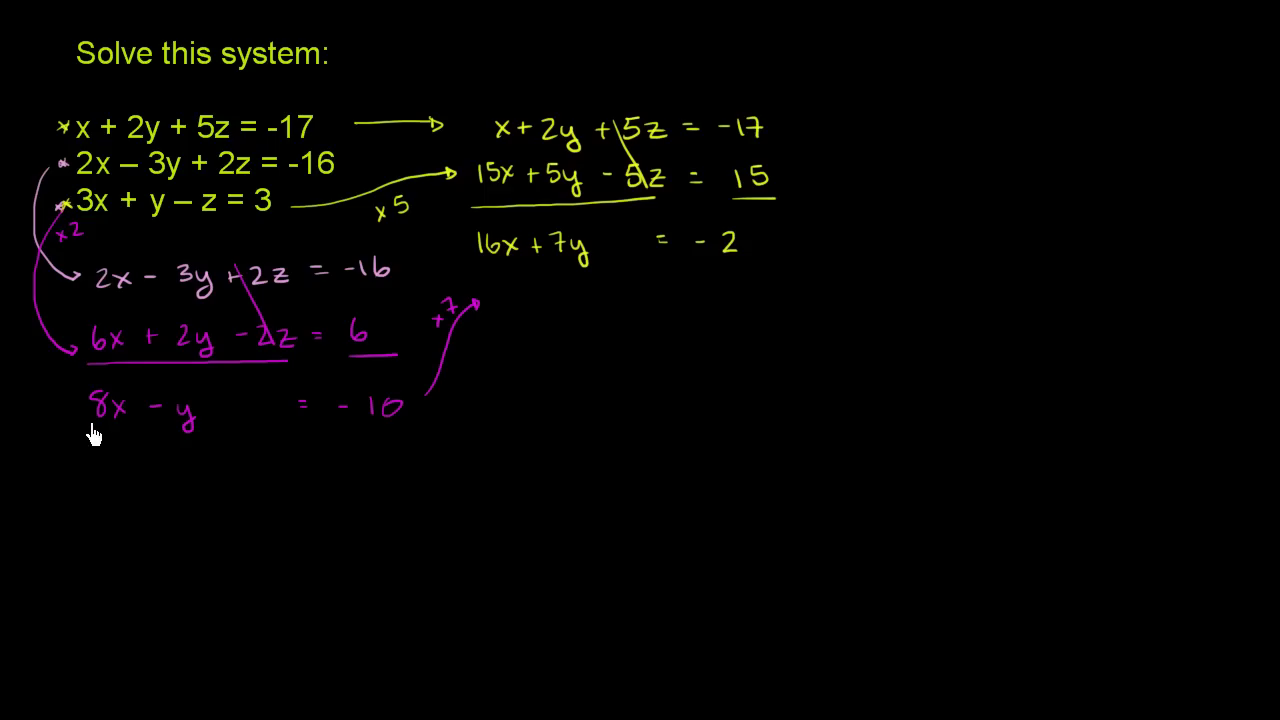 Solve this system:
x + 2y + 5z = -17
2x – 3y + 2z = -16
3x + y – z = 3
x + 2y + 5z = -17
15x + 5y - 5z = 15
x 5
16x + 7y = -2
x 2
2x - 3y + 2z = -16
6x + 2y - 2z = 6
x 7
8x - y = -10